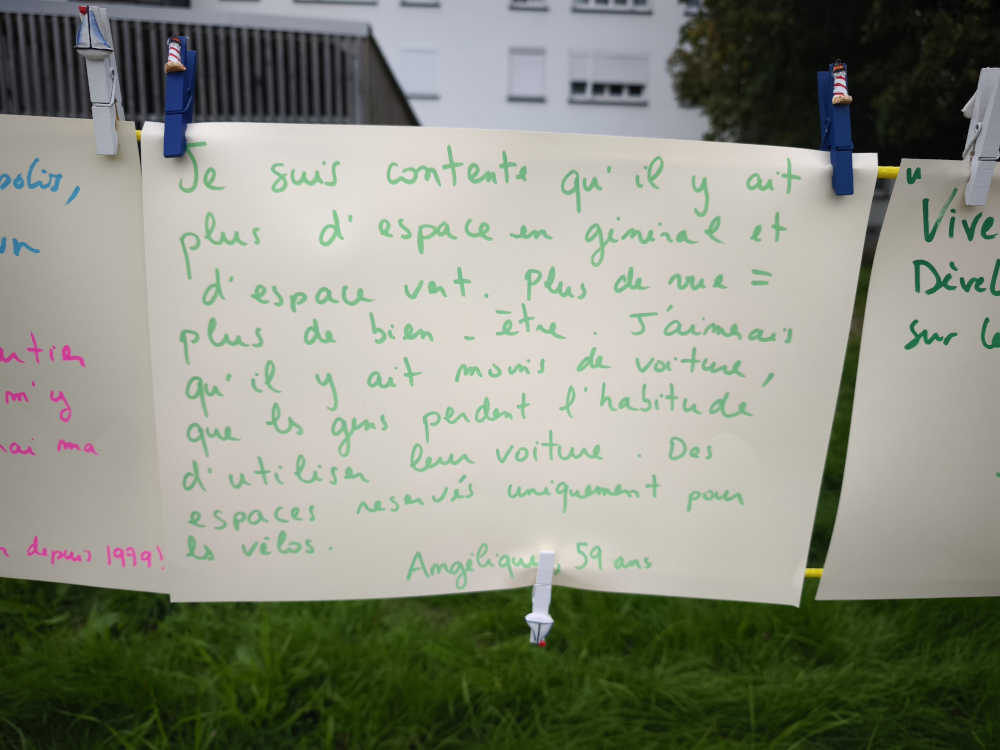 Je suis contente qu'il y ait
plus d'espace en général et
d'espace vert. Plus de vue =
plus de bien-être. J'aimerais
qu'il y ait moins de voiture,
que les gens perdent l'habitude
d'utiliser leur voiture. Des
espaces reservés uniquement pour
les vélos.
Angélique, 59 ans
m'y
ma
depuis 1999!
"
Vive
sur